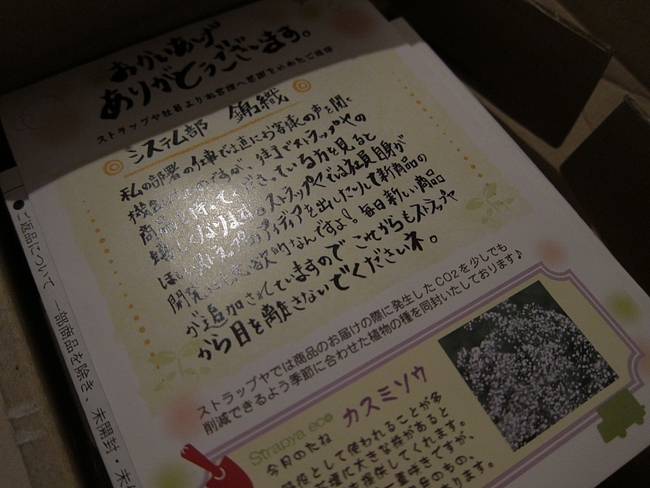 おかいあげ
ありがとうございます。
ストラップヤ社員よりお客様へ感謝を込めたご挨拶
システム部 錦織
私の部署の仕事では直にお客様の声を聞く
機会が少ないのですが、街でストラップヤの
商品を持って下さっている方を見ると
嬉しくなります。ストラップヤでは社員自身が
アイディアを出したりして新商品の
開発にも意欲的なんですよ！毎日新しい商品
が追加されていますのでこれからもストラップヤ
から目を離さないでくださいネ。
ストラップヤでは商品のお届けの際に発生したCO2を少しでも
削減できるよう季節に合わせた植物の種を同封いたしております♪
Strapya eco
カスミソウ
今月のたね
として使われることが多
大きな株があると
してくれます。
一重咲きですが、
のもの、
ります。
●ご返品について 一部商品を除き・未開封・未